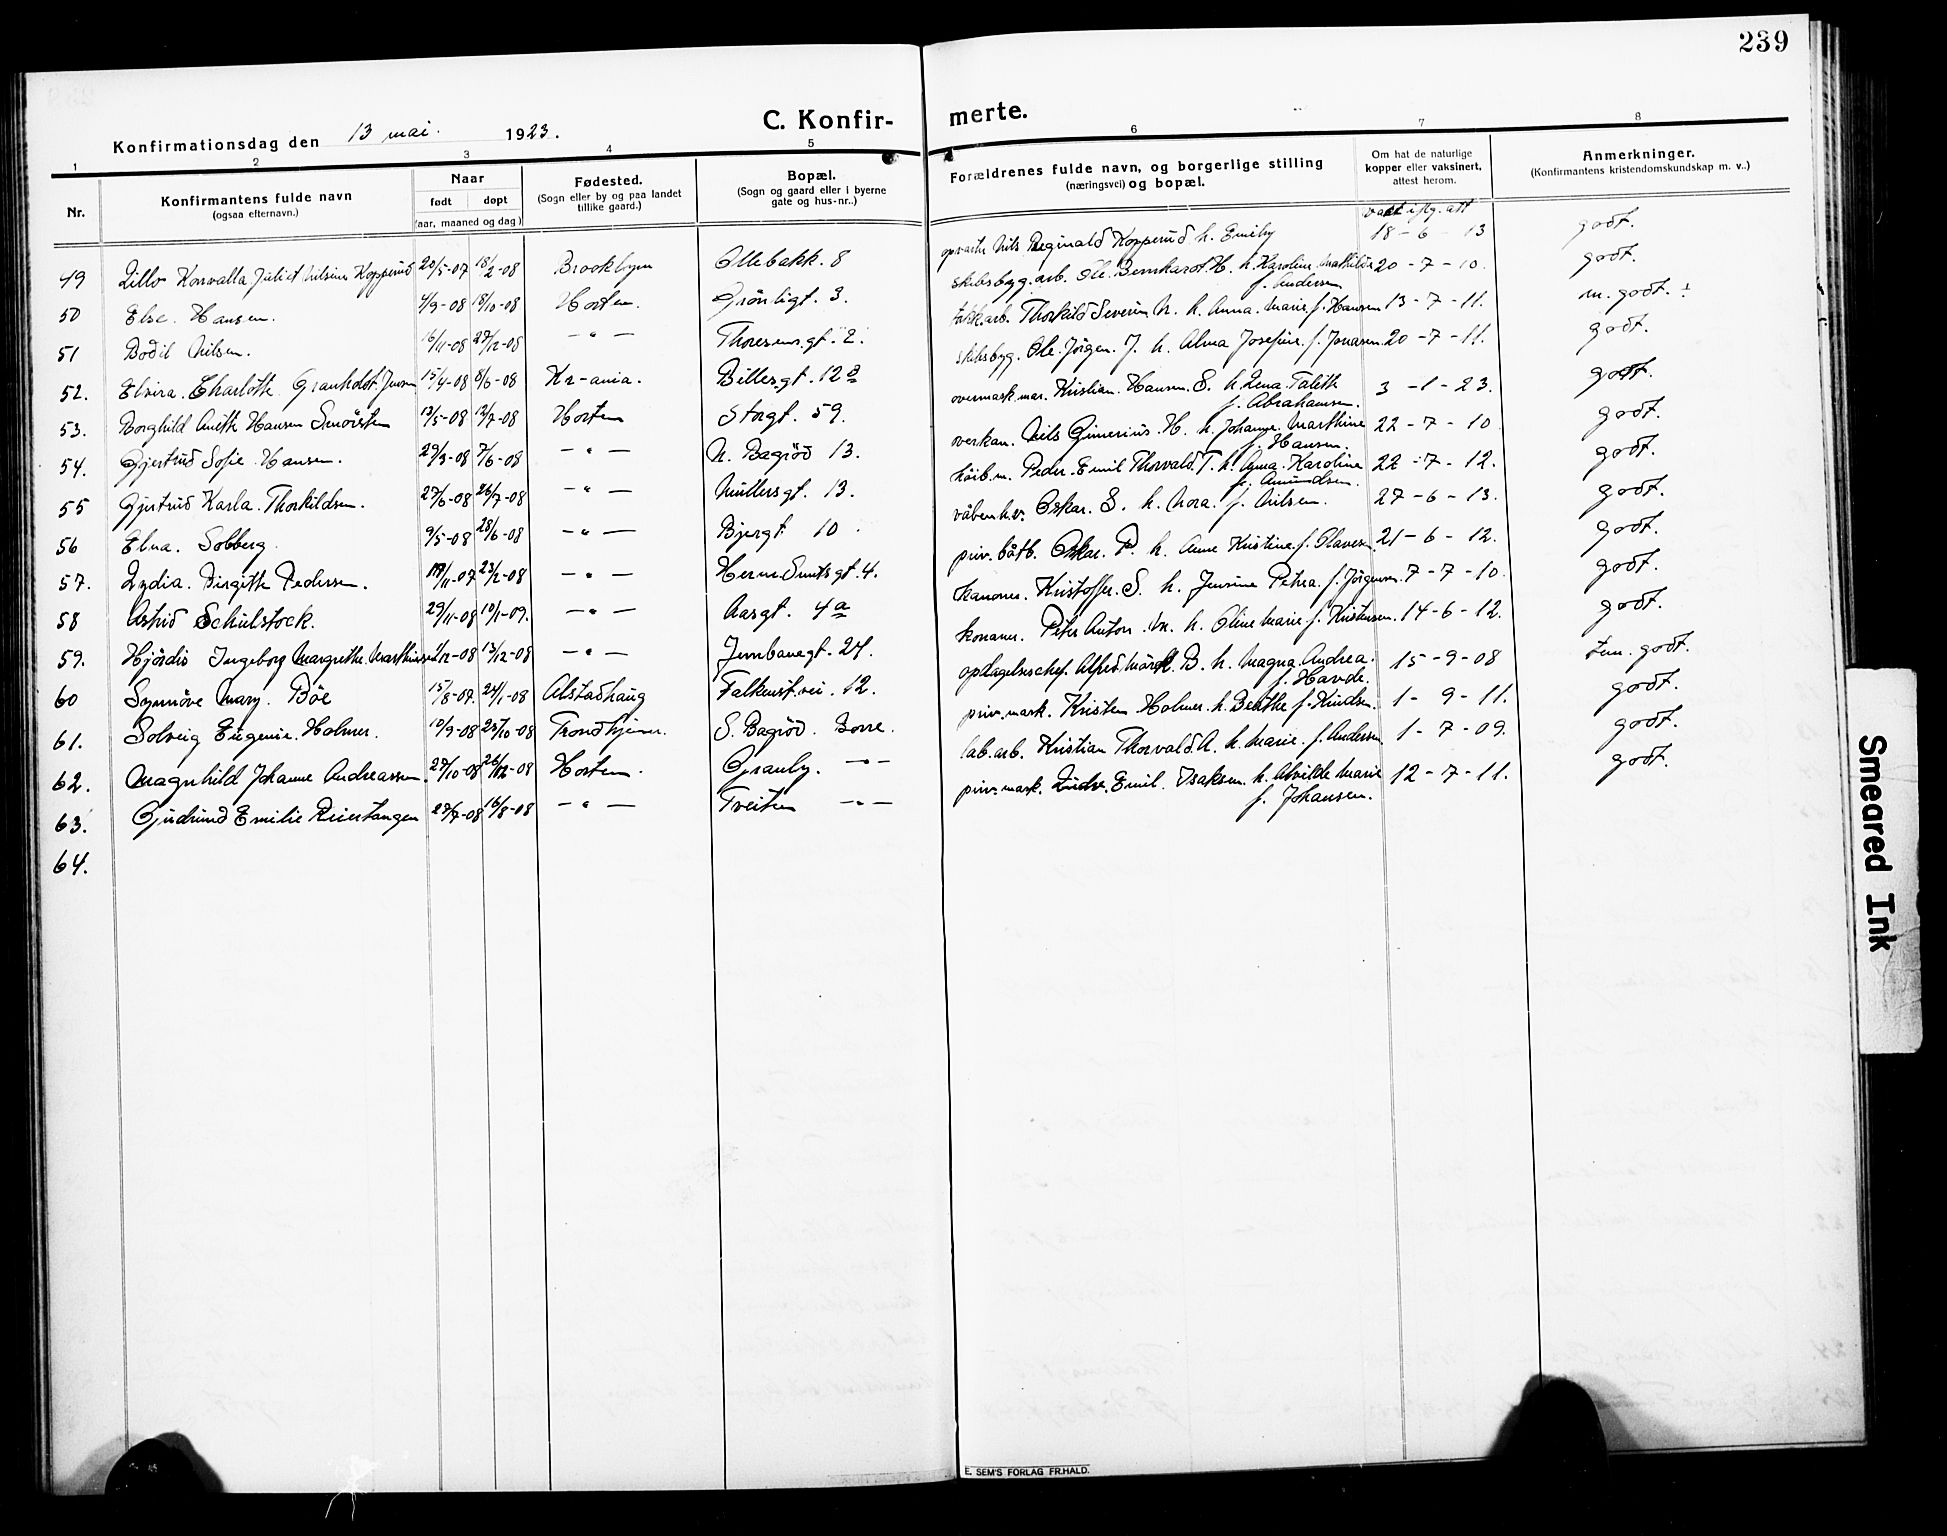 239
C. Konfir- merte.
Konfirmationsdag den 13 mai. 1923.
1 2 3 4 5 6 7 8
Nr.
Konfirmantens fulde navn
(ogsaa efternavn.)
Naar
født døpt
(aar, maaned og dag)
Fødested.
(Sogn eller by og paa landet
tillike gaard.)
Bopæl.
(Sogn og gaard eller i byerne
gate og hus-nr..)
Forældrenes fulde navn, og borgerlige stilling
(næringsvei) og bopæl.
Om hat de naturlige
kopper eller vaksinert,
attest herom.
Anmerkninger.
(Konfirmantens kristendomskundskap m. v..)
49 Juliet Nilsine Kopperud 20/5-07 18/2-08 Brooklyn Ollebakk. 8 Nils Reginald Kopperud h. Emily 18-6-13 godt.
50 Else. Hansen. 4/9-08 18/10-08 Horten. Grönligt. 3. skibsbyg. arb. Ole. Bernhardt H. h. Karoline Mathilde f. Andersen 20-7-10. godt.
51 Bodil Nilsen. 16/11-08 27/12-08 - " - Thoresens.gt. 2. Thorkild Severin N. h. Anna. Marie f. Hansen 13-7-11. m. godt.
52. Elvira. Charloth. Jensen 15/4-08 8/6-08 Kr-ania. Billesgt. 12 a skibsbyg. Ole. Jörgen. J. h. Alma Josefine. f. 20-7-11. godt.
53. Borghild Anith Hansen 13/5-08 12/7-08 Horten Storgt. 59. Kristian. Hansen. S. h. Lena. Talith f. Abrahamsen. 3-1-23. godt.
54. Gjertrud Sofie. Hansen. 29/3-08 7/6-08 - " - N. Bagröd 13. Nils H. h. Johanne. Marthine f. Hansen. 22-7-10 godt.
55 Gjertrud Karla. Thorkildsen. 27/6-08 26/7-08 - " - Müllersgt. 13. Peder. Emil Thorvald T. h. Anna. Karoline f. Amundsen. 22-7-12. godt.
56 Elna. Solberg. 9/5-08 28/6-08 - " - Bjergt 10 Oskar. S. h. Nora. f. Nilsen. 27-6-13. godt.
57. Lydia. Birgith Pedersen. 19/11-07 23/2-08 - " - Herm. Smitsgt. 4. priv. båtb. Oskar. P. h. Anne Kristine f. Olavesen 21-6-12. godt.
58 Astrid Schulstock. 29/11-08 10/1-09. - " - Aasgt. 4 a Kanoner. Kristoffer. S. h. Jensine Petra f. Jörgensen. 7-7-10. godt.
59. Hjördis Ingeborg Margrethe. Marthinsen 1/12-08 13/12-08 - " - Jernbanegt. 24. Peter Anton. M. h. Oline Marie f. Kristensen. 14-6-12. godt.
60 Synnöve Mary. Böe 15/8-07. 24/1-08 Alstadhaug Falkenst. vei. 12. Alfred B. h. Magna. Andrea. f. Havde. 15-9-08 tem. godt.
61. Solveig Eugenie. Holmer. 10/9-08 25/10-08 Trondhjem. S. Bagröd. Borre. priv. mark. Kristen Holmer. h. Berthe f. Knudsen. 1-9-11. godt.
62. Magnhild Johanne Andreassen. 27/10-08 26/12-08 Horten. Granly. - " - lab. arb. Kristian Thorvald. A. h. Marie. f. Andersen. 1-7-09. godt.
63. Gudrund Emilie Reiertangen 27/7-08 16/8-08 - " - Tveiten - " - priv. mark. Emil. Isaksen. h. Alvilde Marie f. Johansen. 12-7-11. godt.
64.
E. SEM'S FORLAG FR.HALD.
Smeared Ink